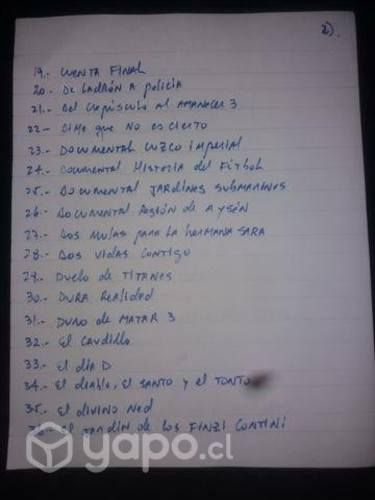 2).
19.- CUENTA FINAL
20.- De LADRÓN A POLICÍA
21.- Del Crepúsculo Al AMANECER 3
22.- DIME QUE NO ES CIERTO
23.- DOCUMENTAL CUZCO IMPERIAL
24.- DOCUMENTAL HISTORIA del FÚTBOL
25.- DOCUMENTAL JARDINES SUBMARINOS
26.- DOCUMENTAL REGIÓN de AYSÉN
27.- DOS MULAS PARA LA HERMANA SARA
28.- DOS VIDAS CONTIGO
29.- DUELO de TITANES
30.- DURA REALIDAD
31.- DURO de MATAR 3
32.- El CAUDILLO
33.- El DÍA D
34.- El diablo, El SANTO y el TONTO
35.- El DIVINO Ned
36.- El JARDÍN de los FINZI CONTINI
yapo.cl